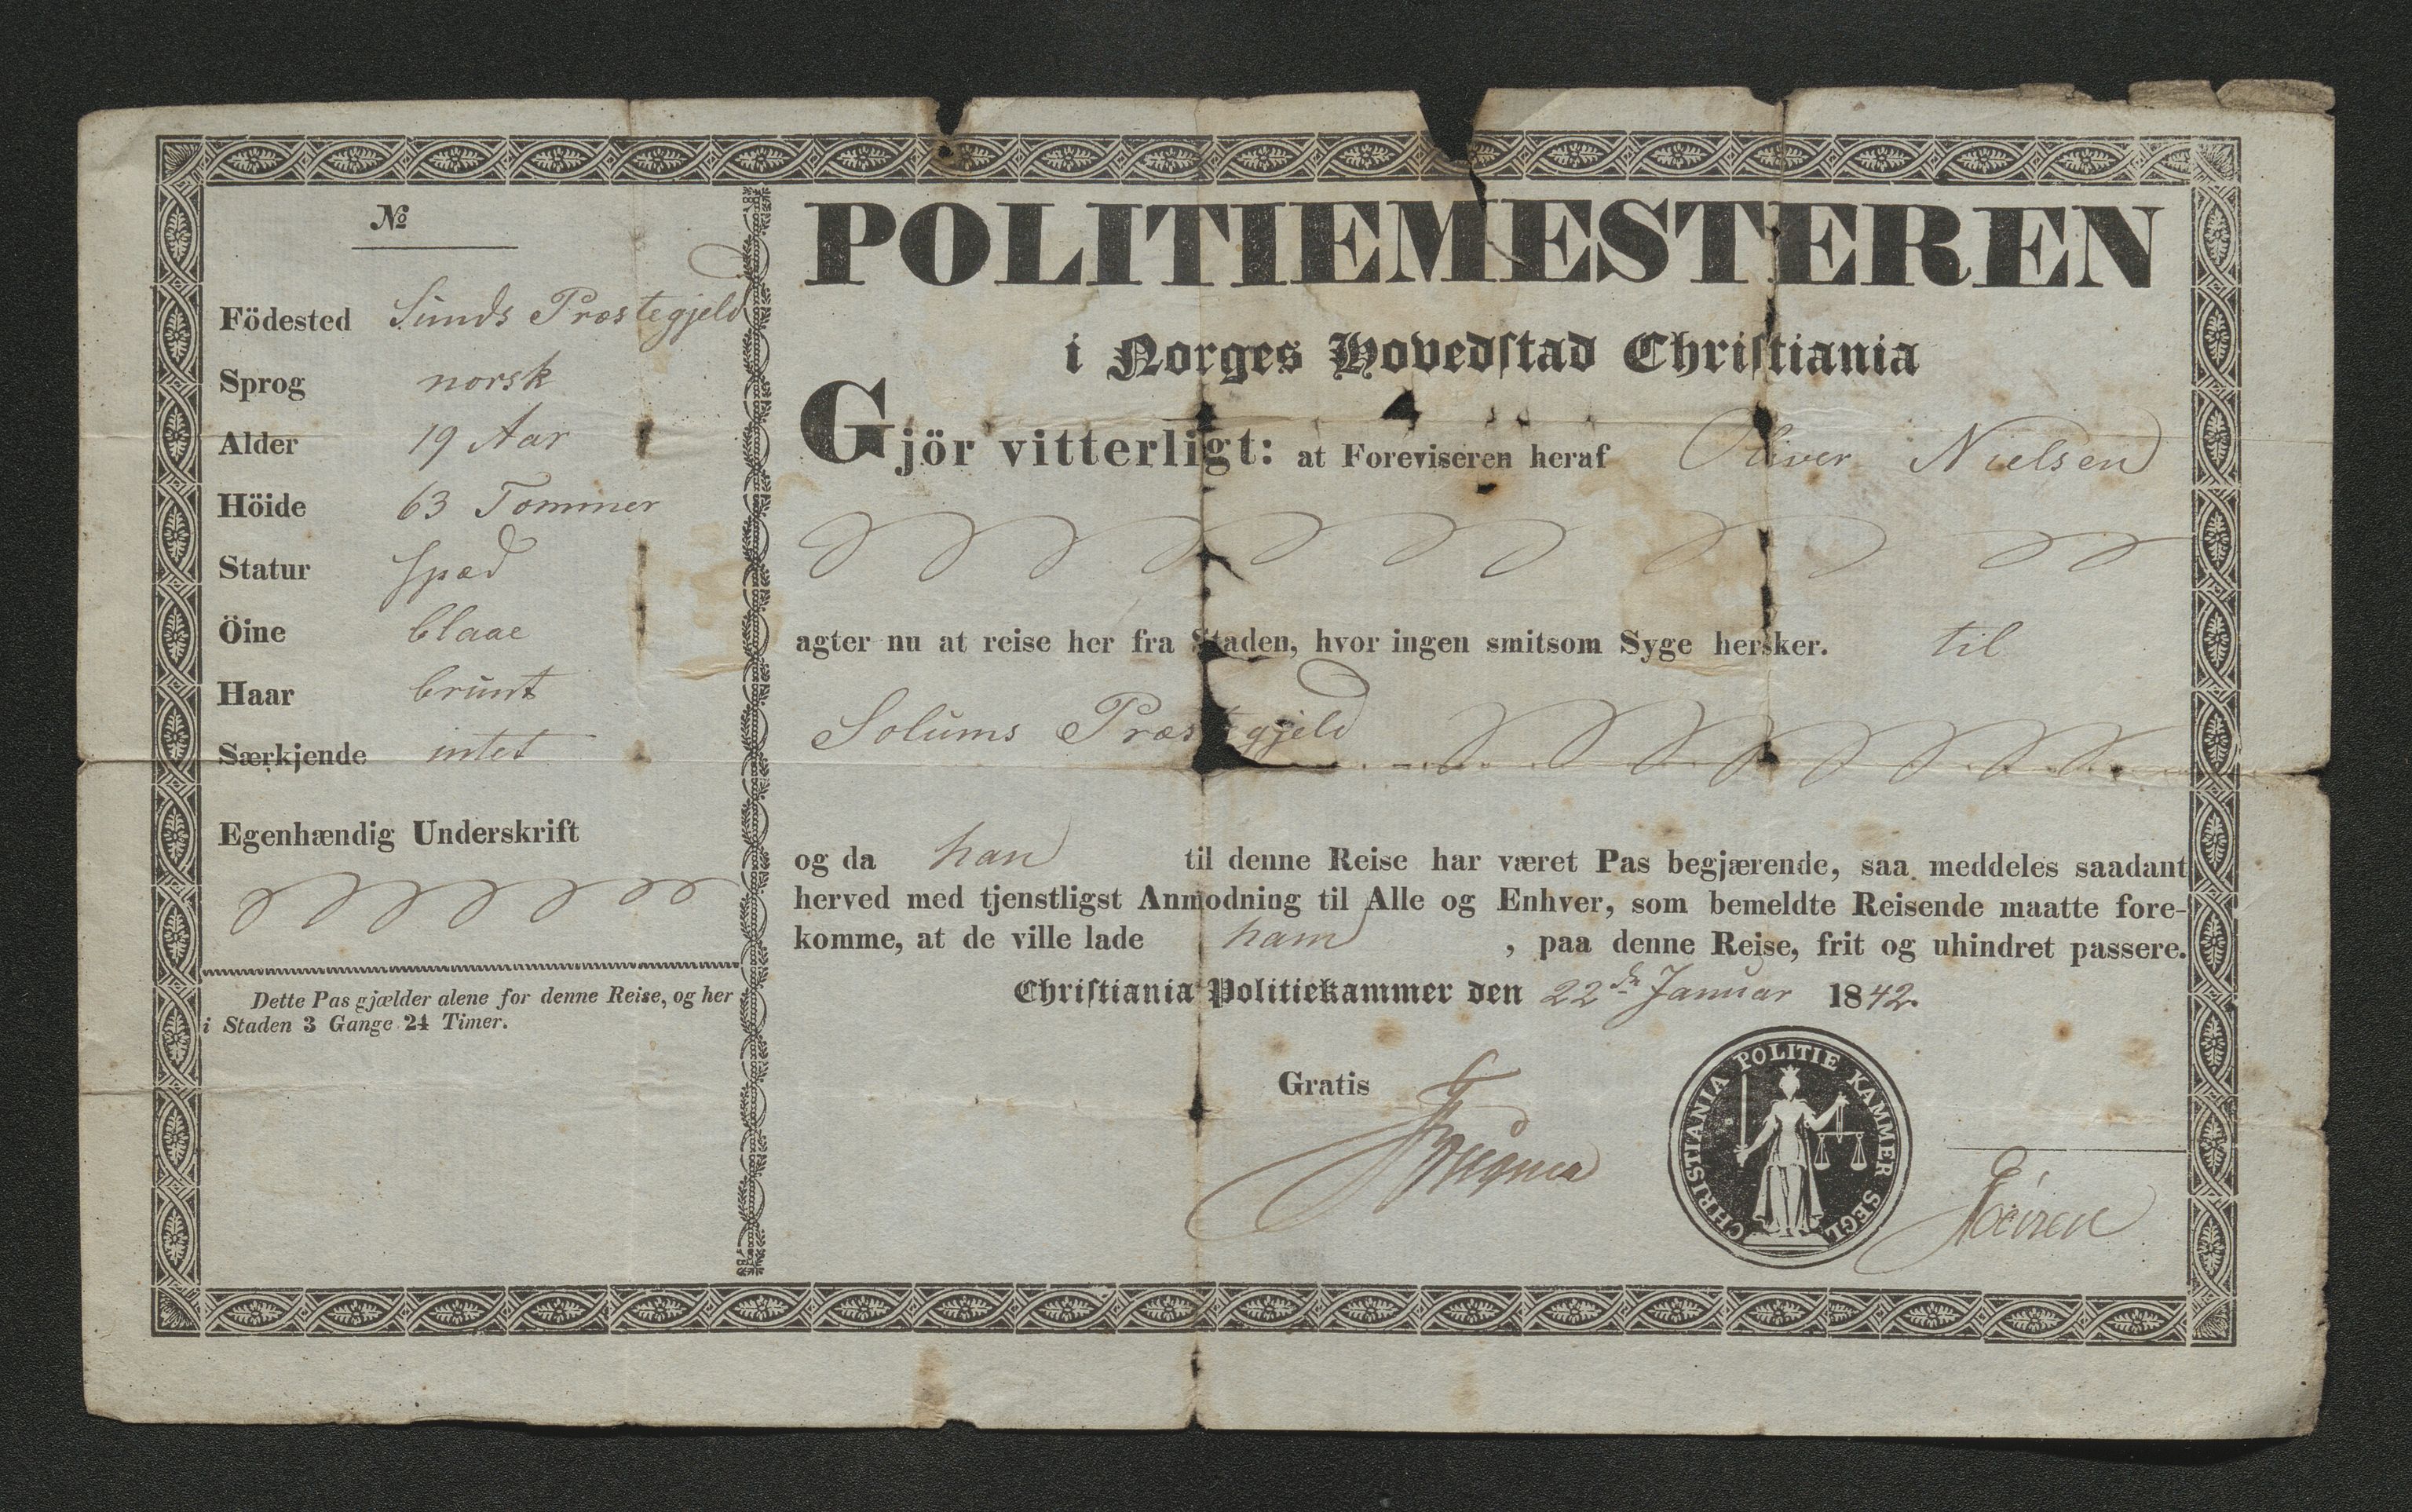 №
Födested Sunds Præstegjeld
Sprog norsk
Alder 19 Aar
Höide 63 Tommer
Statur spæd
Öine blaae
Haar brunt
Særkjende intet
Egenhændig Underskrift
Dette Pas gjælder alene for denne Reise, og her
i Staden 3 Gange 24 Timer.
POLITIEMESTEREN
i Norges Hovedſtad Chriſtiania
Gjör vitterligt: at Foreviseren heraf Oliver Nielsen
agter nu at reise her fra Staden, hvor ingen smitsom Syge hersker. til
Solums Præstegjeld
og da han til denne Reise har været Pas begjærende, saa meddeles saadant
herved med tjenstligst Anmodning til Alle og Enhver, som bemeldte Reisende maatte fore-
komme, at de ville lade ham , paa denne Reise, frit og uhindret passere.
Chriſtiania Politiekammer den 22de Januar 1842.
Gratis
CHRISTIANIA POLITIE KAMMER SEGL